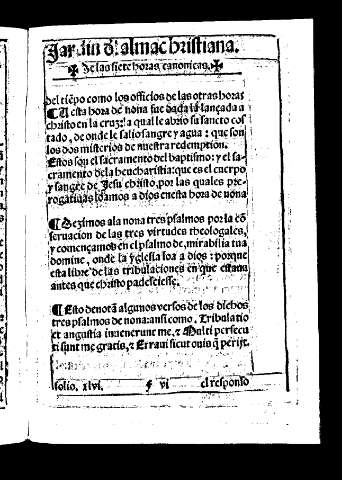 Jardin đl almachristiana.
✠ de las siete horas canonicas. ✠
del tiẽpo como los officios de las otras horas
¶ A esta hora de nona fue dada la lançada a
christo en la cruz: a qual le abrio su sancto cos
tado, de onde le salio sangre y agua: que son
los dos misterios de nuestra redemption.
Estos son el sacramento del baptismo: y el sa-
cramento dela heucharistia: que es el cuerpo
y sangre de Jesu christo, por las quales pre-
rogatiuas loamos a dios en esta hora de nona
¶ Dezimos ala nona tres psalmos por la cõ
seruacion de las tres virtudes theologales,
y començamos en el psalmo de, mirabilia tua
domine, onde la yglesia loa a dios: porque
esta libre de las tribulaciones en que estaua
antes que christo padeciesse.
¶ Esto denotã algunos versos de los dichos
tres psalmos de nona: ansi como. Tribulatio
et angustia inuenerunt me, & Multi persecu
ti sunt me gratis, & Erraui sicut ouis q̃ perijt.
folio. xlvi. f vj el responso